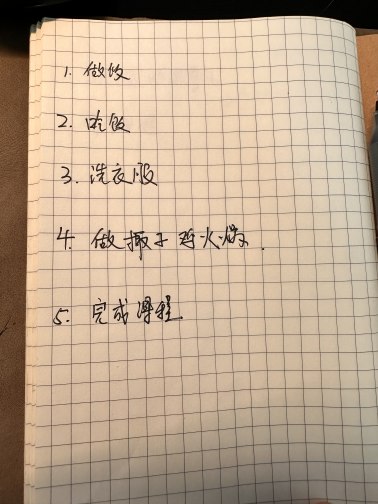 1. 做饭
2. 吃饭
3. 洗衣服
4. 做椰子鸡火锅.
5. 完成课程